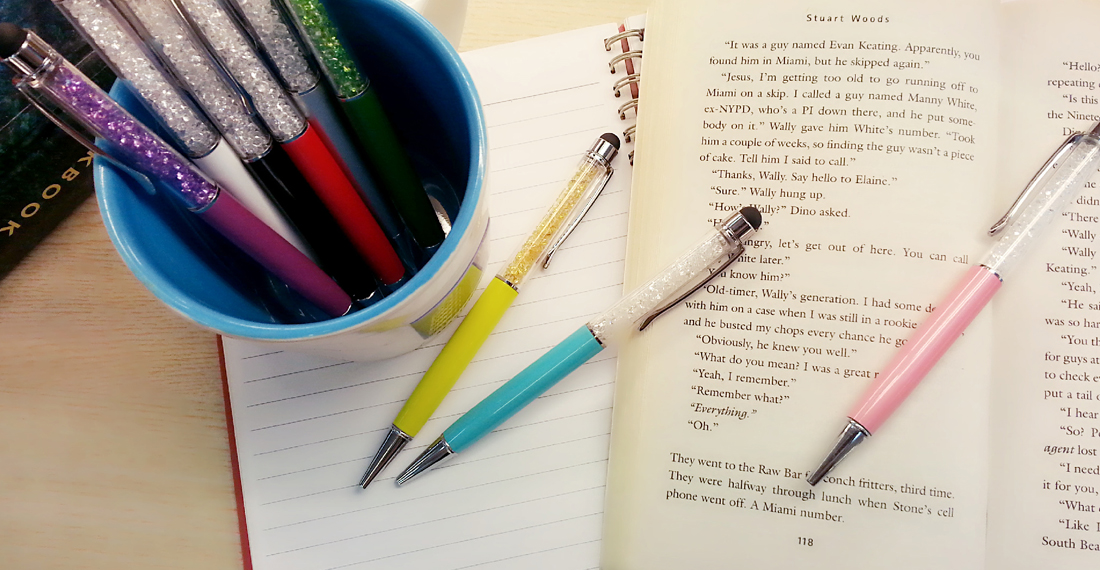 BOOK
Stuart Woods
"It was a guy named Evan Keating. Apparently, you
found him in Miami, but he skipped again."
"Jesus, I'm getting too old to go running off to
Miami on a skip. I called a guy named Manny White,
ex-NYPD, who's a PI down there, and he put some-
body on it." Wally gave him White's number. "Took
him a couple of weeks, so finding the guy wasn't a piece
of cake. Tell him I said to call."
"Thanks, Wally. Say hello to Elaine."
"Sure." Wally hung up.
"How's Wally?" Dino asked.
let's get out of here. You can call
later."
know him?"
"Old-timer, Wally's generation. I had some
with him on a case when I was still in a rookie
and he busted my chops every chance he
"Obviously, he knew you well."
"What do you mean? I was a great
"Yeah, I remember."
"Remember what?"
"Everything."
"Oh."
They went to the Raw Bar conch fritters, third time.
They were halfway through lunch when Stone's cell
phone went off. A Miami number.
118
"Hello?
repeating
"Is this
the
"There
"Wally
"Wally
Keating."
"Yeah,
"He
was so
"You
for guys
to check
put a tail
"I hear
"So?
agent lost
"I need
it for you,
"What
"Like
South